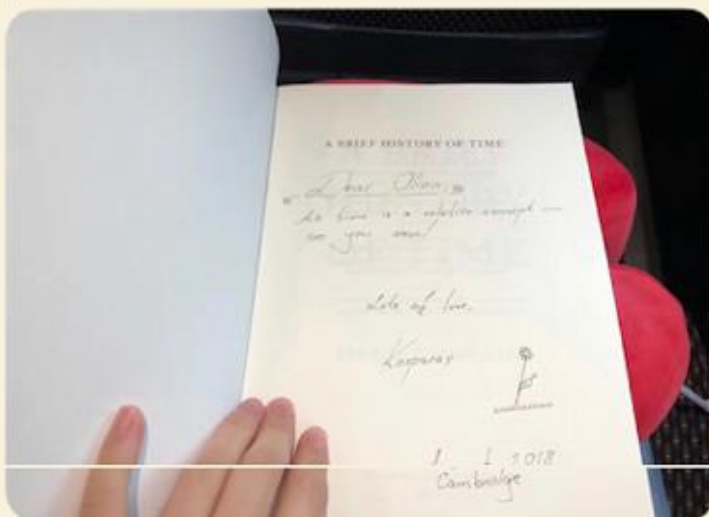 A BRIEF HISTORY OF TIME
Dear
As time is a relative concept —
see you soon!
Lots of love,
Kasparas
1 2018
Cambridge